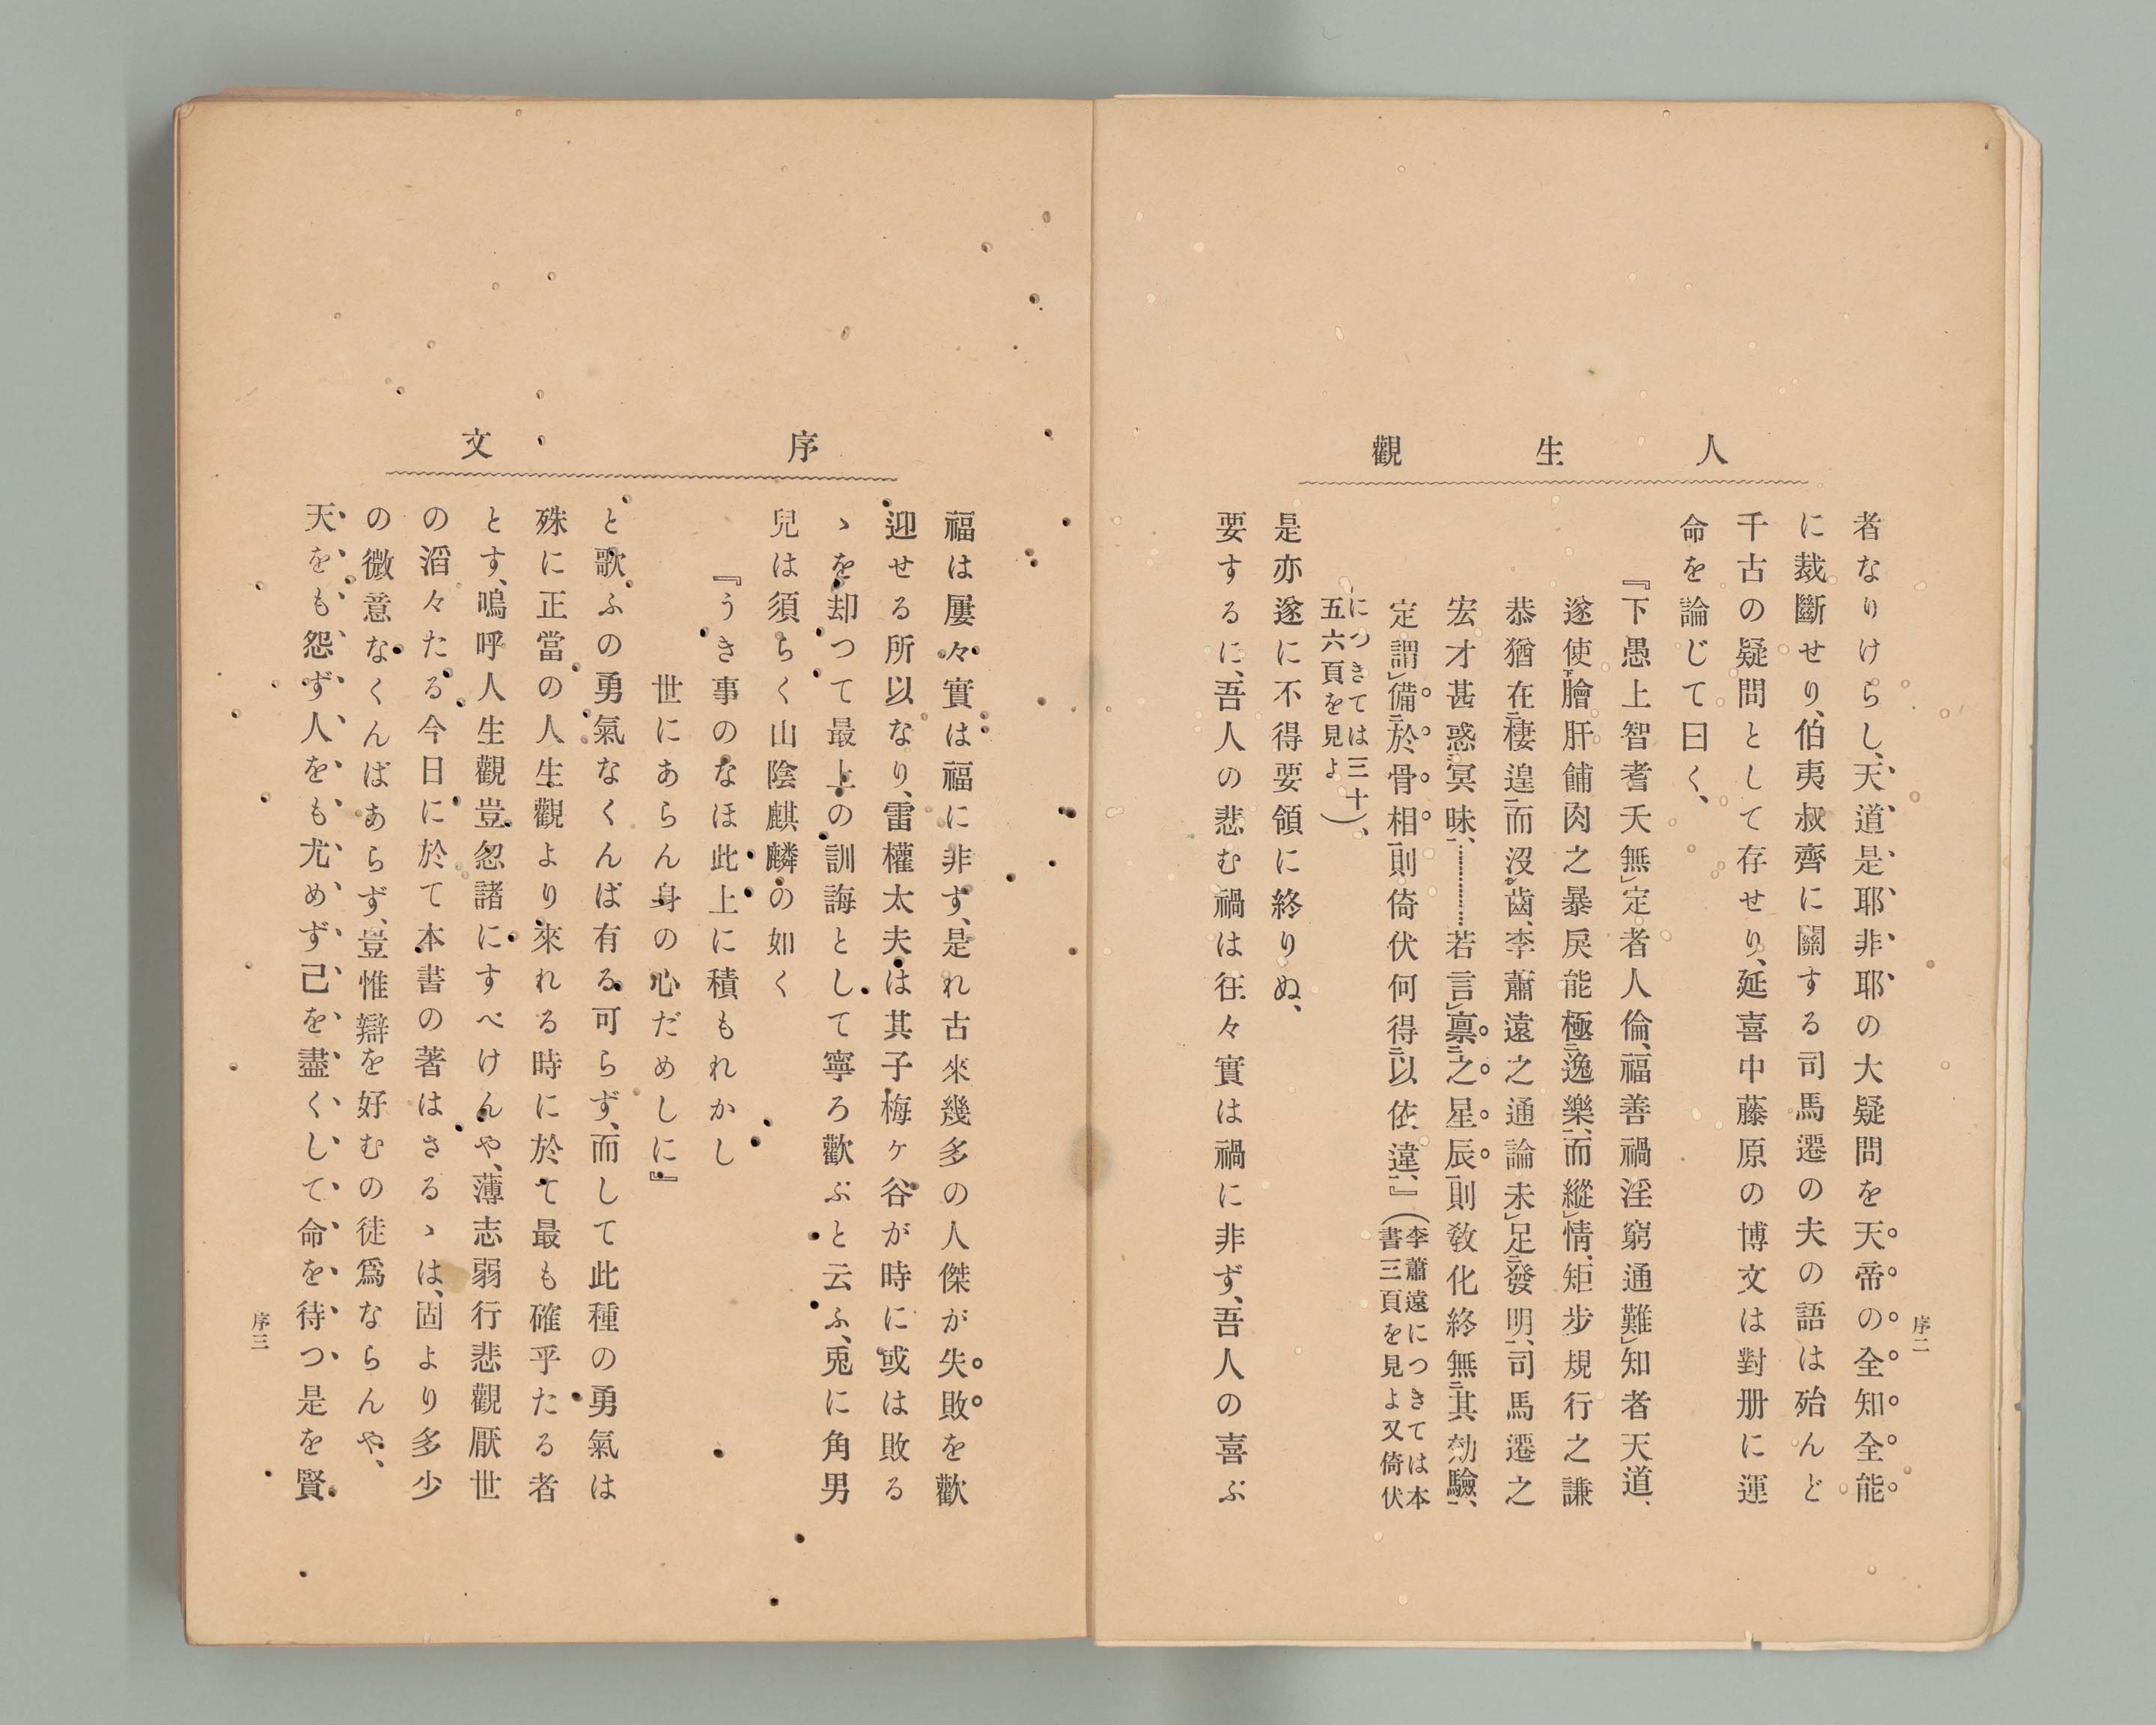 人生觀
序二
者なりけらし、天道是耶非耶の大疑問を天帝の全知全能
に裁斷せり、伯夷叔齊に關する司馬遷の夫の語は殆んど
千古の疑問として存せり、延喜中藤原の博文は對册に運
命を論じて曰く、
『下愚上智耆夭無㆑定者人倫、福善禍淫窮通難㆑知者天道、
遂使㆘膾肝餔肉之暴戾能極㆓逸樂㆒、而縱㆑情、矩步規行之謙
恭猶在㆓棲遑㆒而沒㆖齒、李蕭遠之通論未㆑足㆓發明㆒、司馬遷之
宏才甚惑㆓冥昧㆒、…………若言㆑禀㆓之星辰㆒則敎化終無㆓其効驗㆒、
定謂㆑備㆓於骨相㆒則倚伏何得㆓以依違㆒、』(李蕭遠につきては本
書三頁を見よ又倚伏
につきては三十
五六頁を見よ)、
是亦遂に不得要領に終りぬ、
要するに、吾人の悲む禍は往々實は禍に非ず、吾人の喜ぶ
序文
福は屢々實は福に非ず、是れ古來幾多の人傑が失敗を歡
迎せる所以なり、雷權太夫は其子梅ヶ谷が時に或は敗る
ゝを却つて最上の訓誨として寧ろ歡ぶと云ふ、兎に角男
兒は須らく山陰麒麟の如く
『うき事のなほ此上に積もれかし
世にあらん身の心だめしに』
と歌ふの勇氣なくんば有る可らず、而して此種の勇氣は
殊に正當の人生觀より來れる時に於て最も確乎たる者
とす、嗚呼人生觀豈忽諸にすべけんや、薄志弱行悲觀厭世
の滔々たる今日に於て本書の著はさるゝは、固より多少
の微意なくんばあらず、豈惟辯を好むの徒爲ならんや、
天をも怨ず人をも尤めず己を盡くして命を待つ是を賢
序三